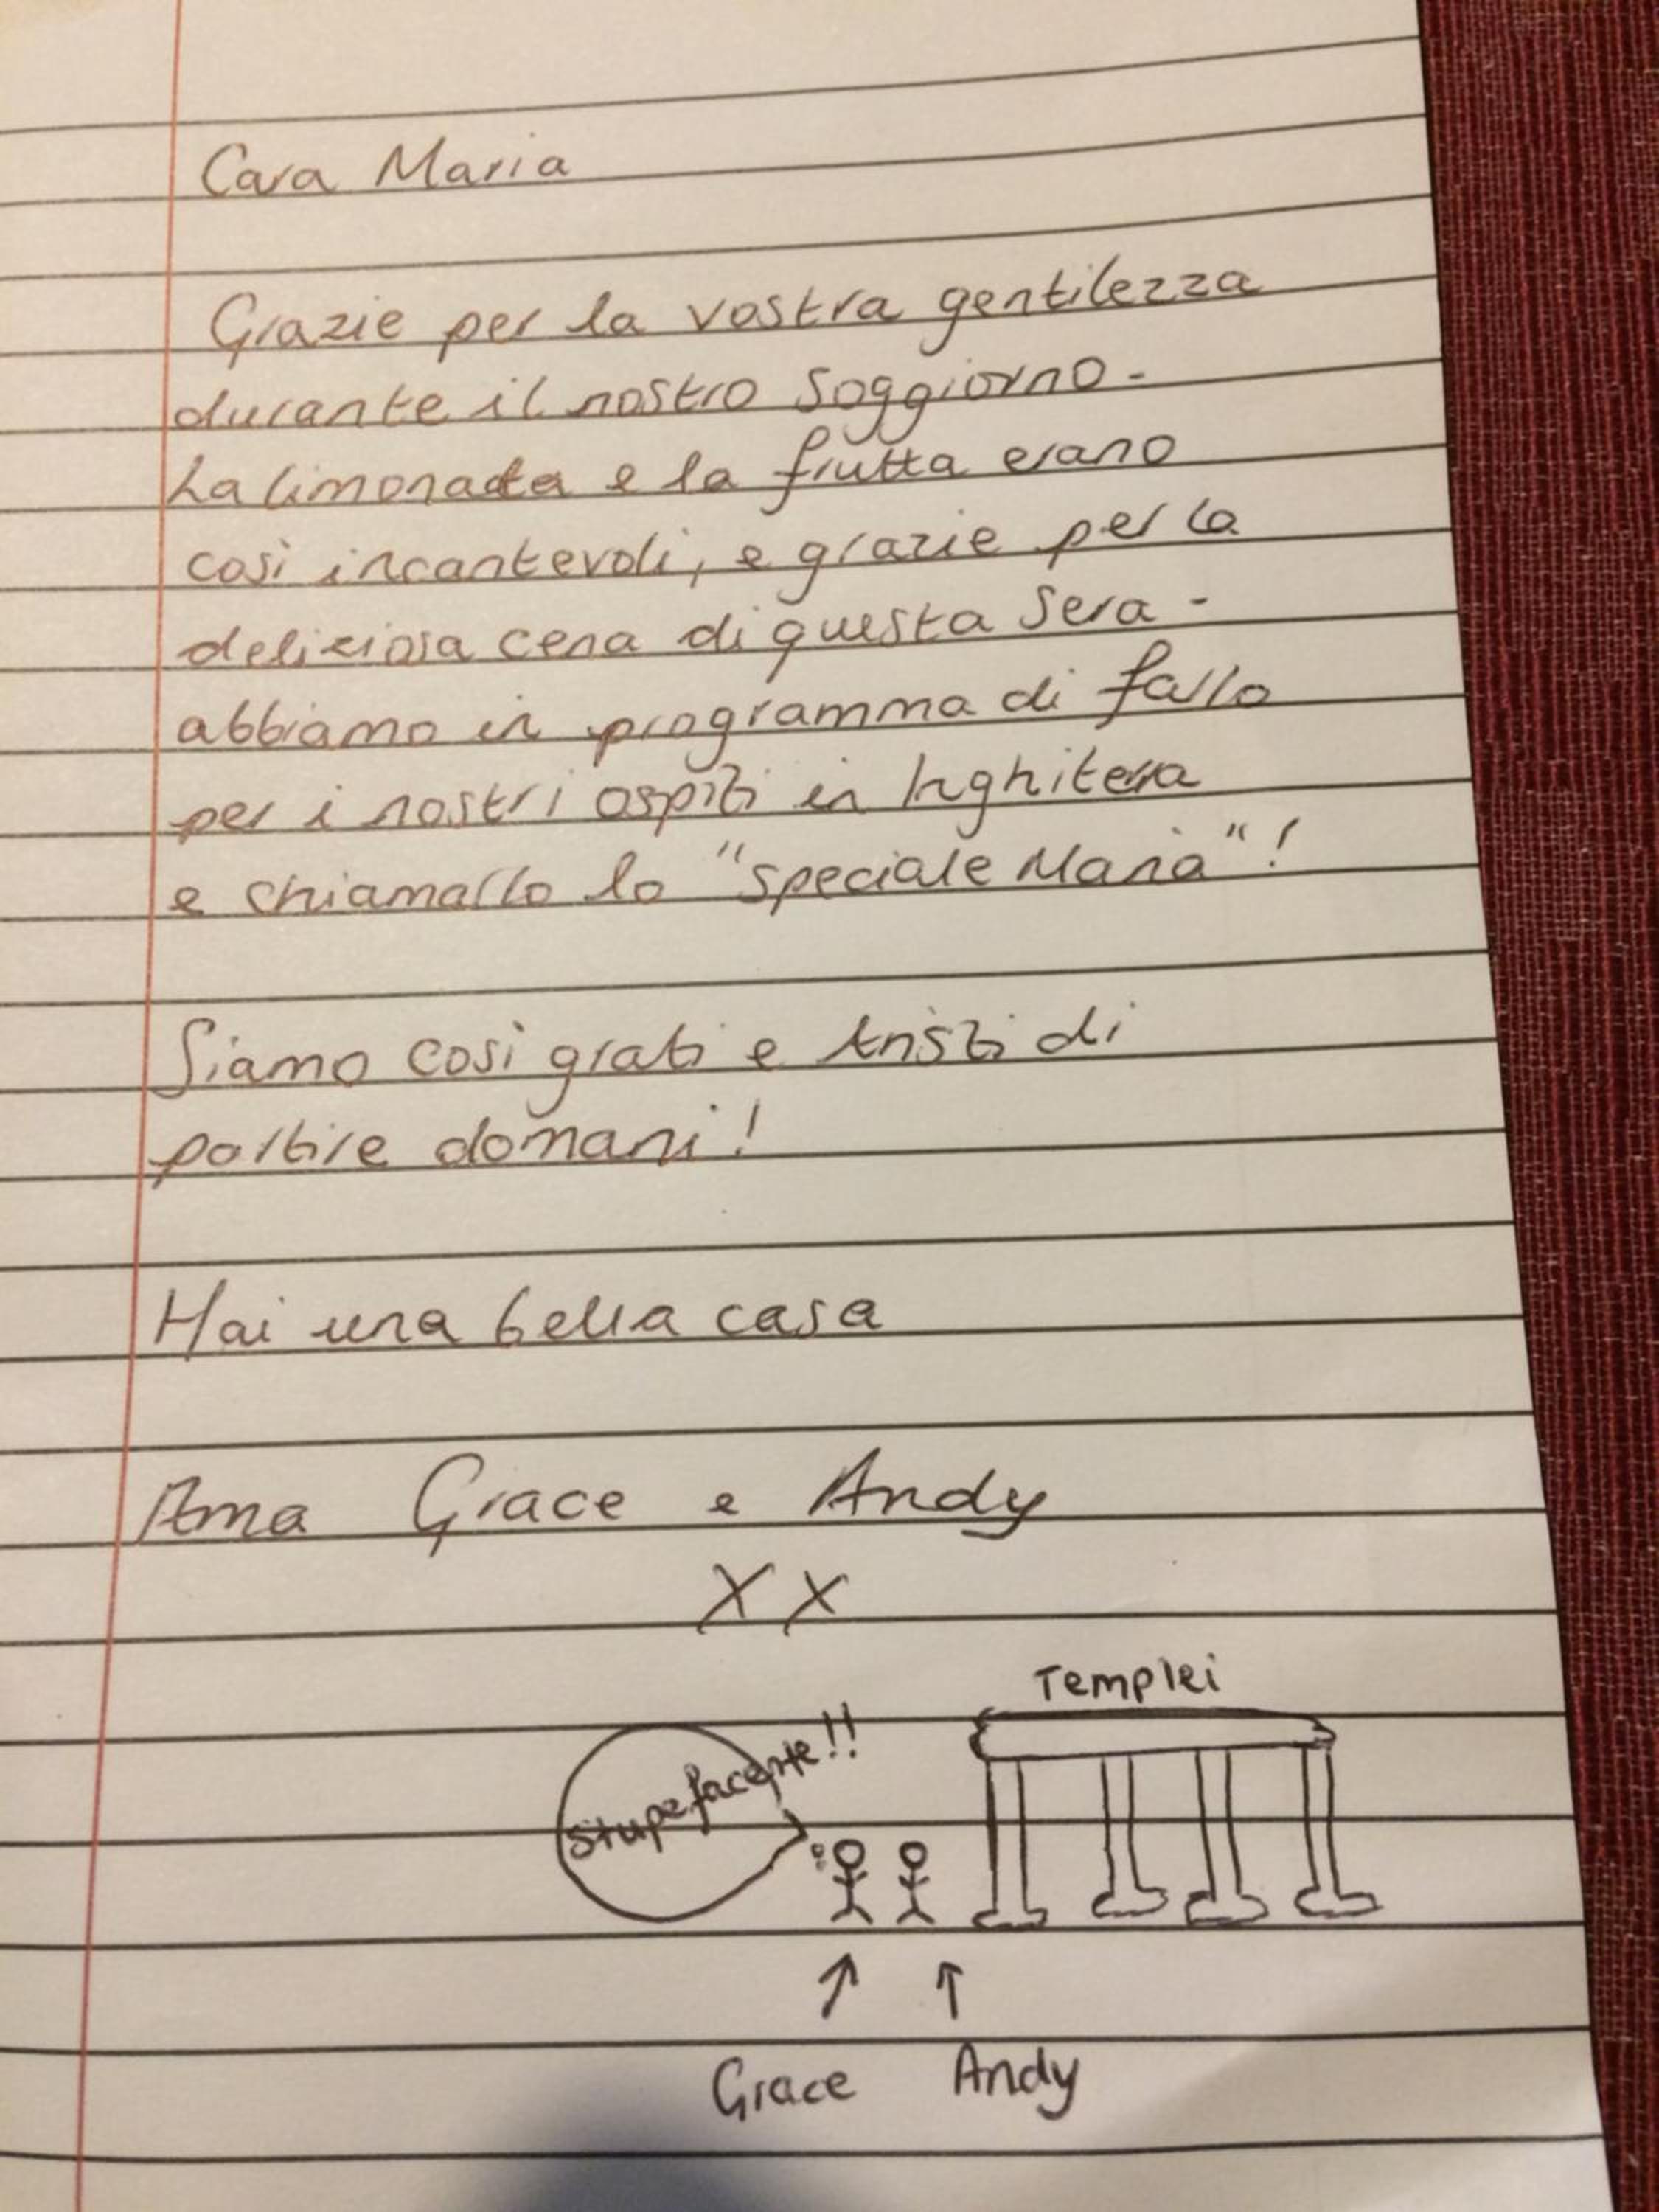 Cara Maria
Grazie per la vostra gentilezza
durante il nostro soggiorno.
La limonada e la frutta erano
così incantevoli, e grazie per la
deliziosa cena di questa sera -
abbiamo in programma di farlo
per i nostri ospiti in Inghiterra
e chiamarlo lo "speciale Maria"!
Siamo così grati e tristi di
partire domani!
Hai una bella casa
Ama Grace e Andy
XX
Templei
Stupefacente!!
Grace Andy